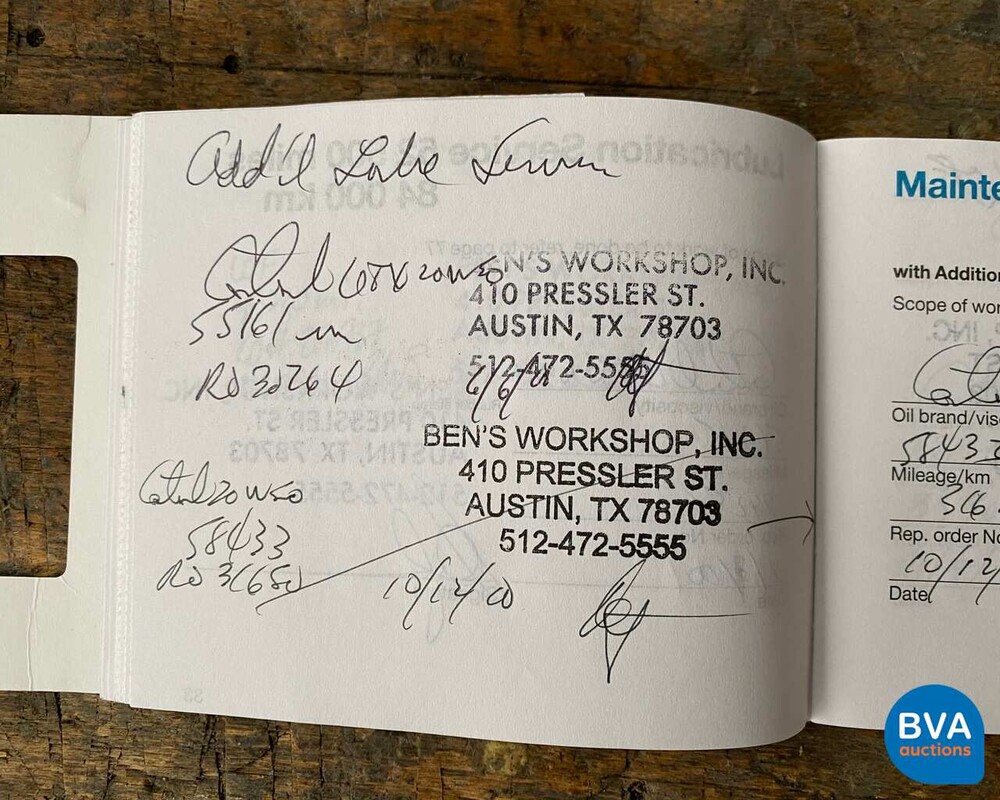 Add'l Lube Service
Castrol GTX 20W50
55161 mi
RO 30264
BEN'S WORKSHOP, INC.
410 PRESSLER ST.
AUSTIN, TX 78703
512-472-5555
6/6/00
BEN'S WORKSHOP, INC.
410 PRESSLER ST.
AUSTIN, TX 78703
512-472-5555
Castrol 20W50
58433
RO 31650
10/12/00
Mainte
with Addition
Scope of wor
Oil brand/visc
58433
Mileage/km
316
Rep. order No
10/12/
Date
BVA
auctions